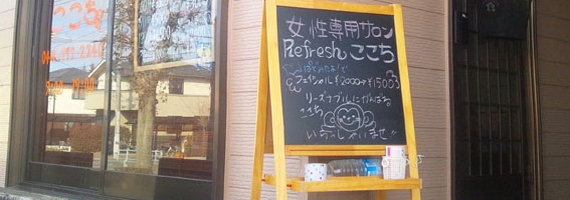 ここち
女性専用サロン
Refresh ここち
フェイシャル ¥2000→¥1500
リーズナブルにがんばる
ここち
いらっしゃいませ!!